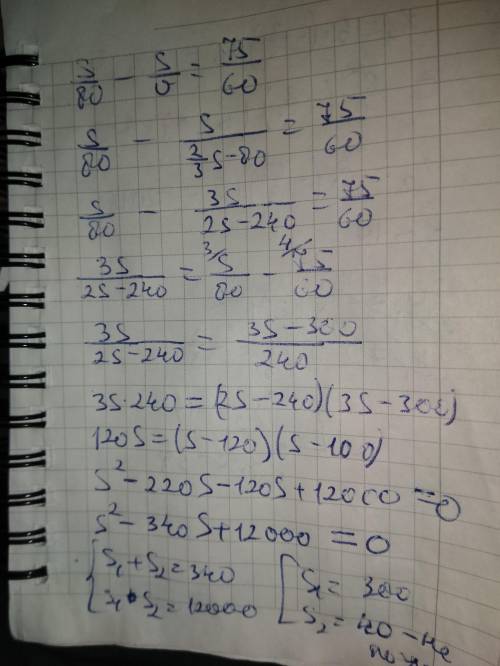 S/80 - S/υ = 75/60
S/80 - S/(2/3 S-80) = 75/60
S/80 - 3S/(2S-240) = 75/60
3S/(2S-240) = 3/S/80 - 4/75/60
3S/(2S-240) = (3S-300)/240
3S·240=(2S-240)(3S-300)
120S=(S-120)(S-100)
S²-220S-120S+12000=0
S²-340S+12000=0
{ S₁+S₂=340 [ S₁= 300
{ S₁•S₂=12000 S₂=40-не